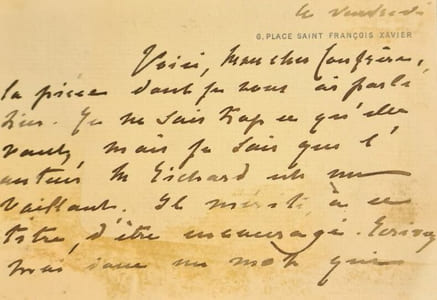 le vendredi
6, PLACE SAINT FRANÇOIS XAVIER
Voici, mon cher Confrère,
la pièce dont je vous ai parlé
hier. Je ne sais trop ce qu'elle
vaut, mais je sais que l'
auteur M Richard est un
vaillant. Il mérite, à ce
titre, d'être encouragé. Ecrivez
moi donc un mot qui